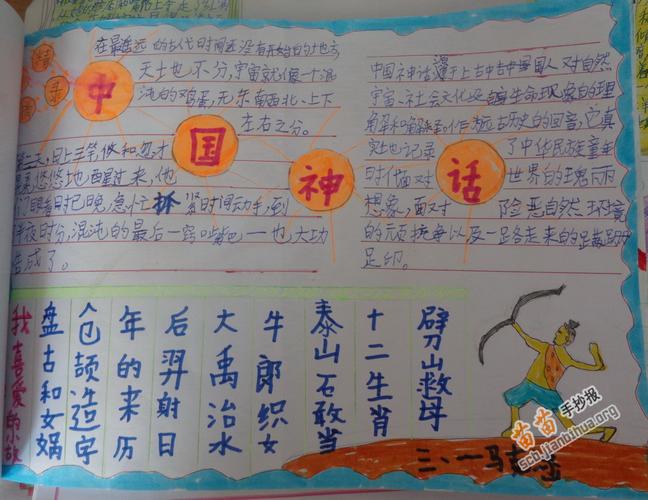 精
录
中国神话
在最遥远的古代时间还没有开始的地方
天土也不分,宇宙就像一个混
沌的鸡蛋,无东南西北、上下
左右之分。
一天,日上三竿,倏和忽才
悠悠地 西星过来,他
门眼看时已晚,急忙抓紧时间动手,到
半夜时分,混沌的最后一窍 也大功
告成了。
中国神话 于上古 中国人对自然
宇宙、社会文化 生命现象的理
作为远古历史的回音,它真
实地也记录了中华民族童年
时代面对世界的瑰丽
想象,面对险恶自然环境
的顽抗争以及一路走来的
足印。
我喜爱的小故
盘古和女娲
仓颉造字
年的来历
后羿射日
大禹治水
牛郎织女
泰山石敢当
十二生肖
劈山救母
三、一马
苗苗手抄报
scb.jianbihua.org